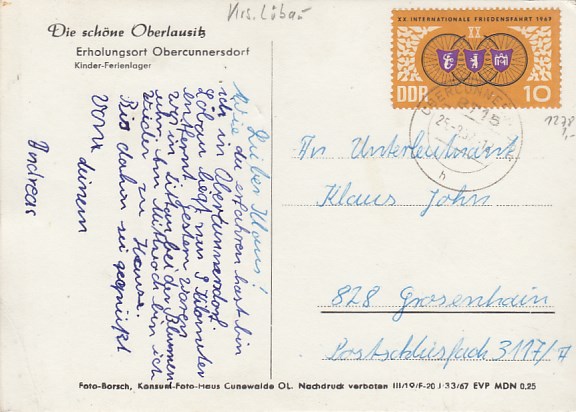 Krs. Löbau
Die schöne Oberlausitz
Erholungsort Obercunnersdorf
Kinder-Ferienlager
XX. INTERNATIONALE FRIEDENSFAHRT 1967
XX
DDR 10
8715
1278
1,-
Lieber Klaus!
Wie du erfahren hast bin
ich in Obercunnersdorf.
Löbau liegt nun 9 Kilometer
entfernt. Gestern waren
wir in Zittau bei der Blumen
uhr. Am Mittwoch bin ich
wieder zu Hause.
Bis dahin sei gegrüßt
von deinem
Andreas
An Unterleutnant
Klaus John
828 Grosenhain
Postschliesfach 3117/A
Foto-Borsch, Konsum-Foto-Haus Cunewalde OL. Nachdruck verboten III/19/F-20 J-33/67 EVP MDN 0,25